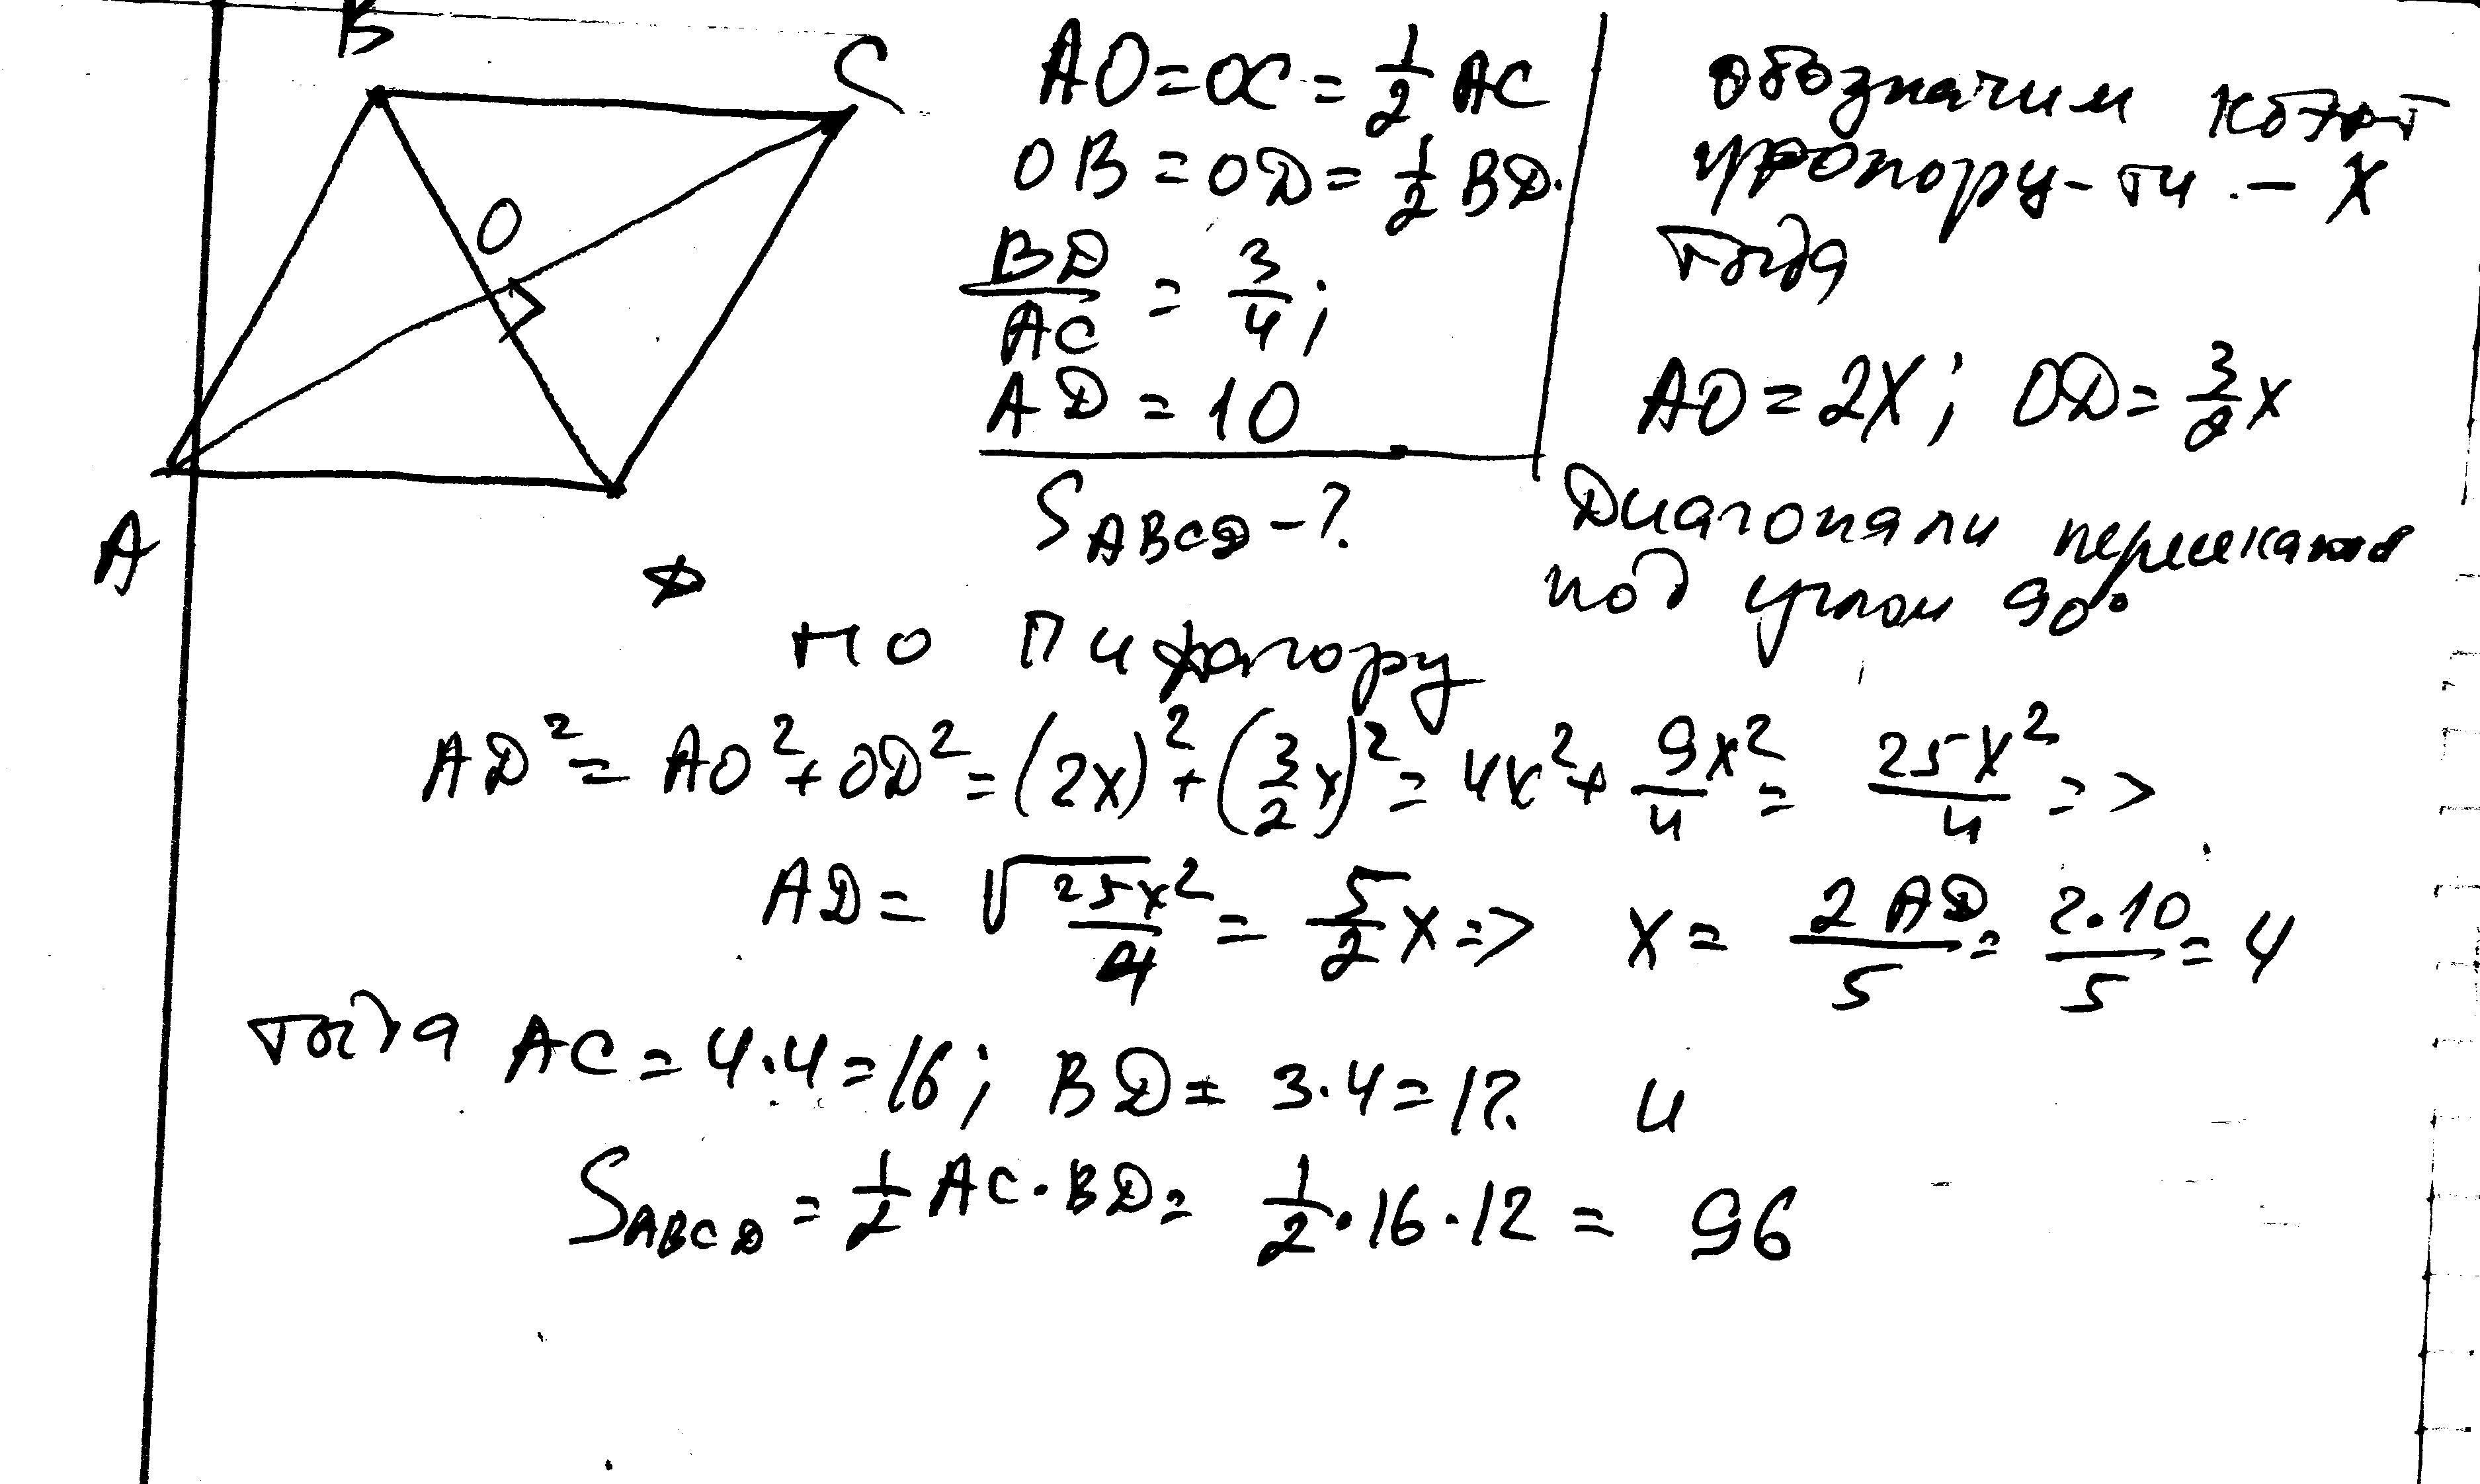 B
C
O
A
D
AO = OC = 1/2 AC
OB = OD = 1/2 BD.
BD/AC = 3/4;
AD = 10
S ABCD - ?
Обозначим коэф
пропору-ти. - X
Тогда
AO = 2X; OD = 3/2 X
Диагонали пересекаются
под углом 90°
По Пифагору
AD² = AO² + OD² = (2X)² + (3/2 X)² = 4X² + 9X²/4 = 25X²/4 =>
AD = √25X²/4 = 5/2 X => X = 2AD/5 = 2·10/5 = 4
Тогда AC = 4·4 = 16; BD = 3·4 = 12. и
S ABCD = 1/2 AC · BD = 1/2 · 16 · 12 = 96